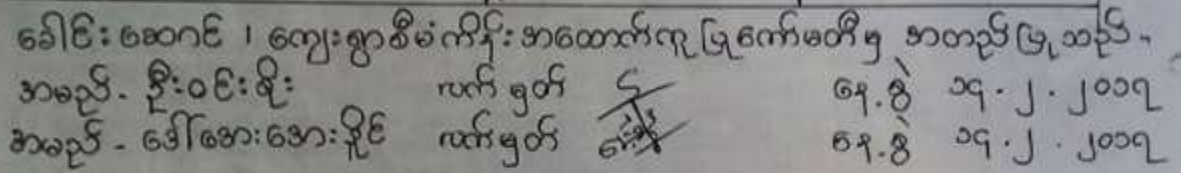 ခေါင်းဆောင် ၊ ကျေးရွာစီမံကိန်းအထောက်ကူပြုကော်မတီမှ အတည်ပြုသည်-
အမည်- ဦးဝင်းစိုး လက်မှတ် နေ့စွဲ ၁၄.၂.၂၀၁၇
အမည်- ဒေါ်အေးအေးခိုင် လက်မှတ် နေ့စွဲ ၁၄.၂.၂၀၁၇